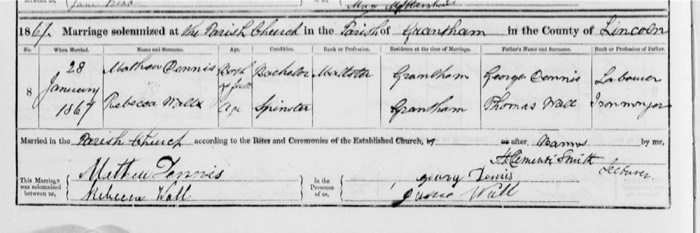 1867. Marriage solemnized at the Parish Church in the Parish of Grantham in the County of Lincoln
No. When Married. Name and Surname. Age. Condition. Rank or Profession. Residence at the time of Marriage. Father's Name and Surname. Rank or Profession of Father.
8 28 January 1867 Mathew Dennis Both of full Age Bachelor Maltster Grantham George Dennis Labourer
Rebecca Wall Spinster Grantham Thomas Wall Ironmonger
Married in the Parish Church according to the Rites and Ceremonies of the Established Church, by or after Banns by me,
Clement Smith Lecturer
This Marriage was solemnized between us, Mathew Dennis Rebecca Wall In the Presence of us, Dennis Wall